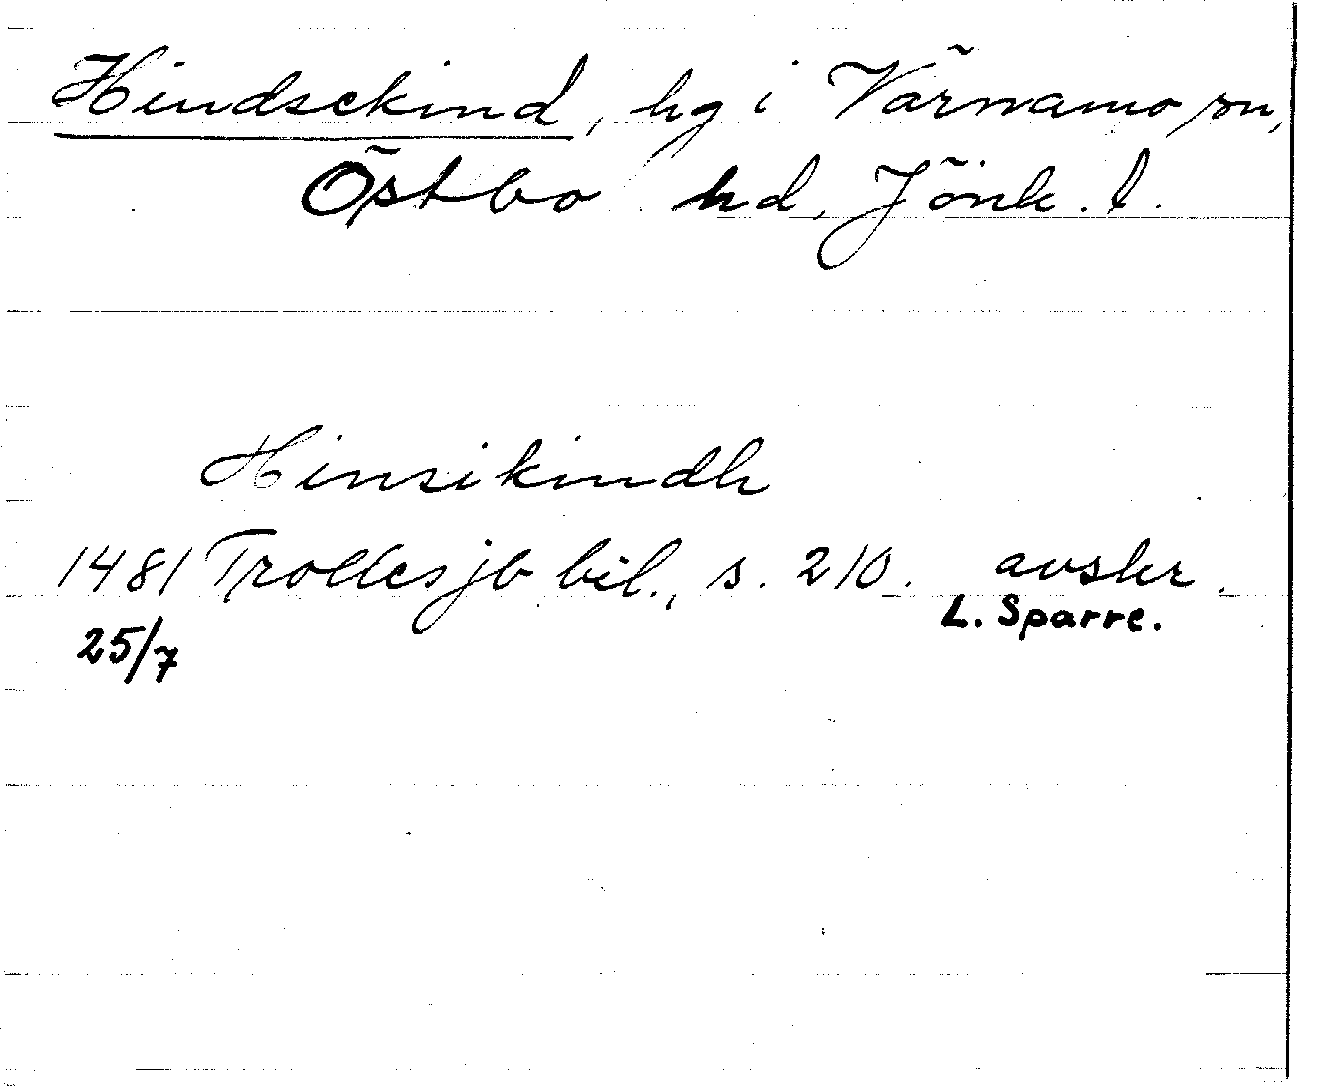 Hindsekind, hg i Värnamo sn,
Östbo hd, Jönk. l.
Hinsikindh
1481 Trolles jb bil., s. 210. avskr.
25/7 L. Sparre.